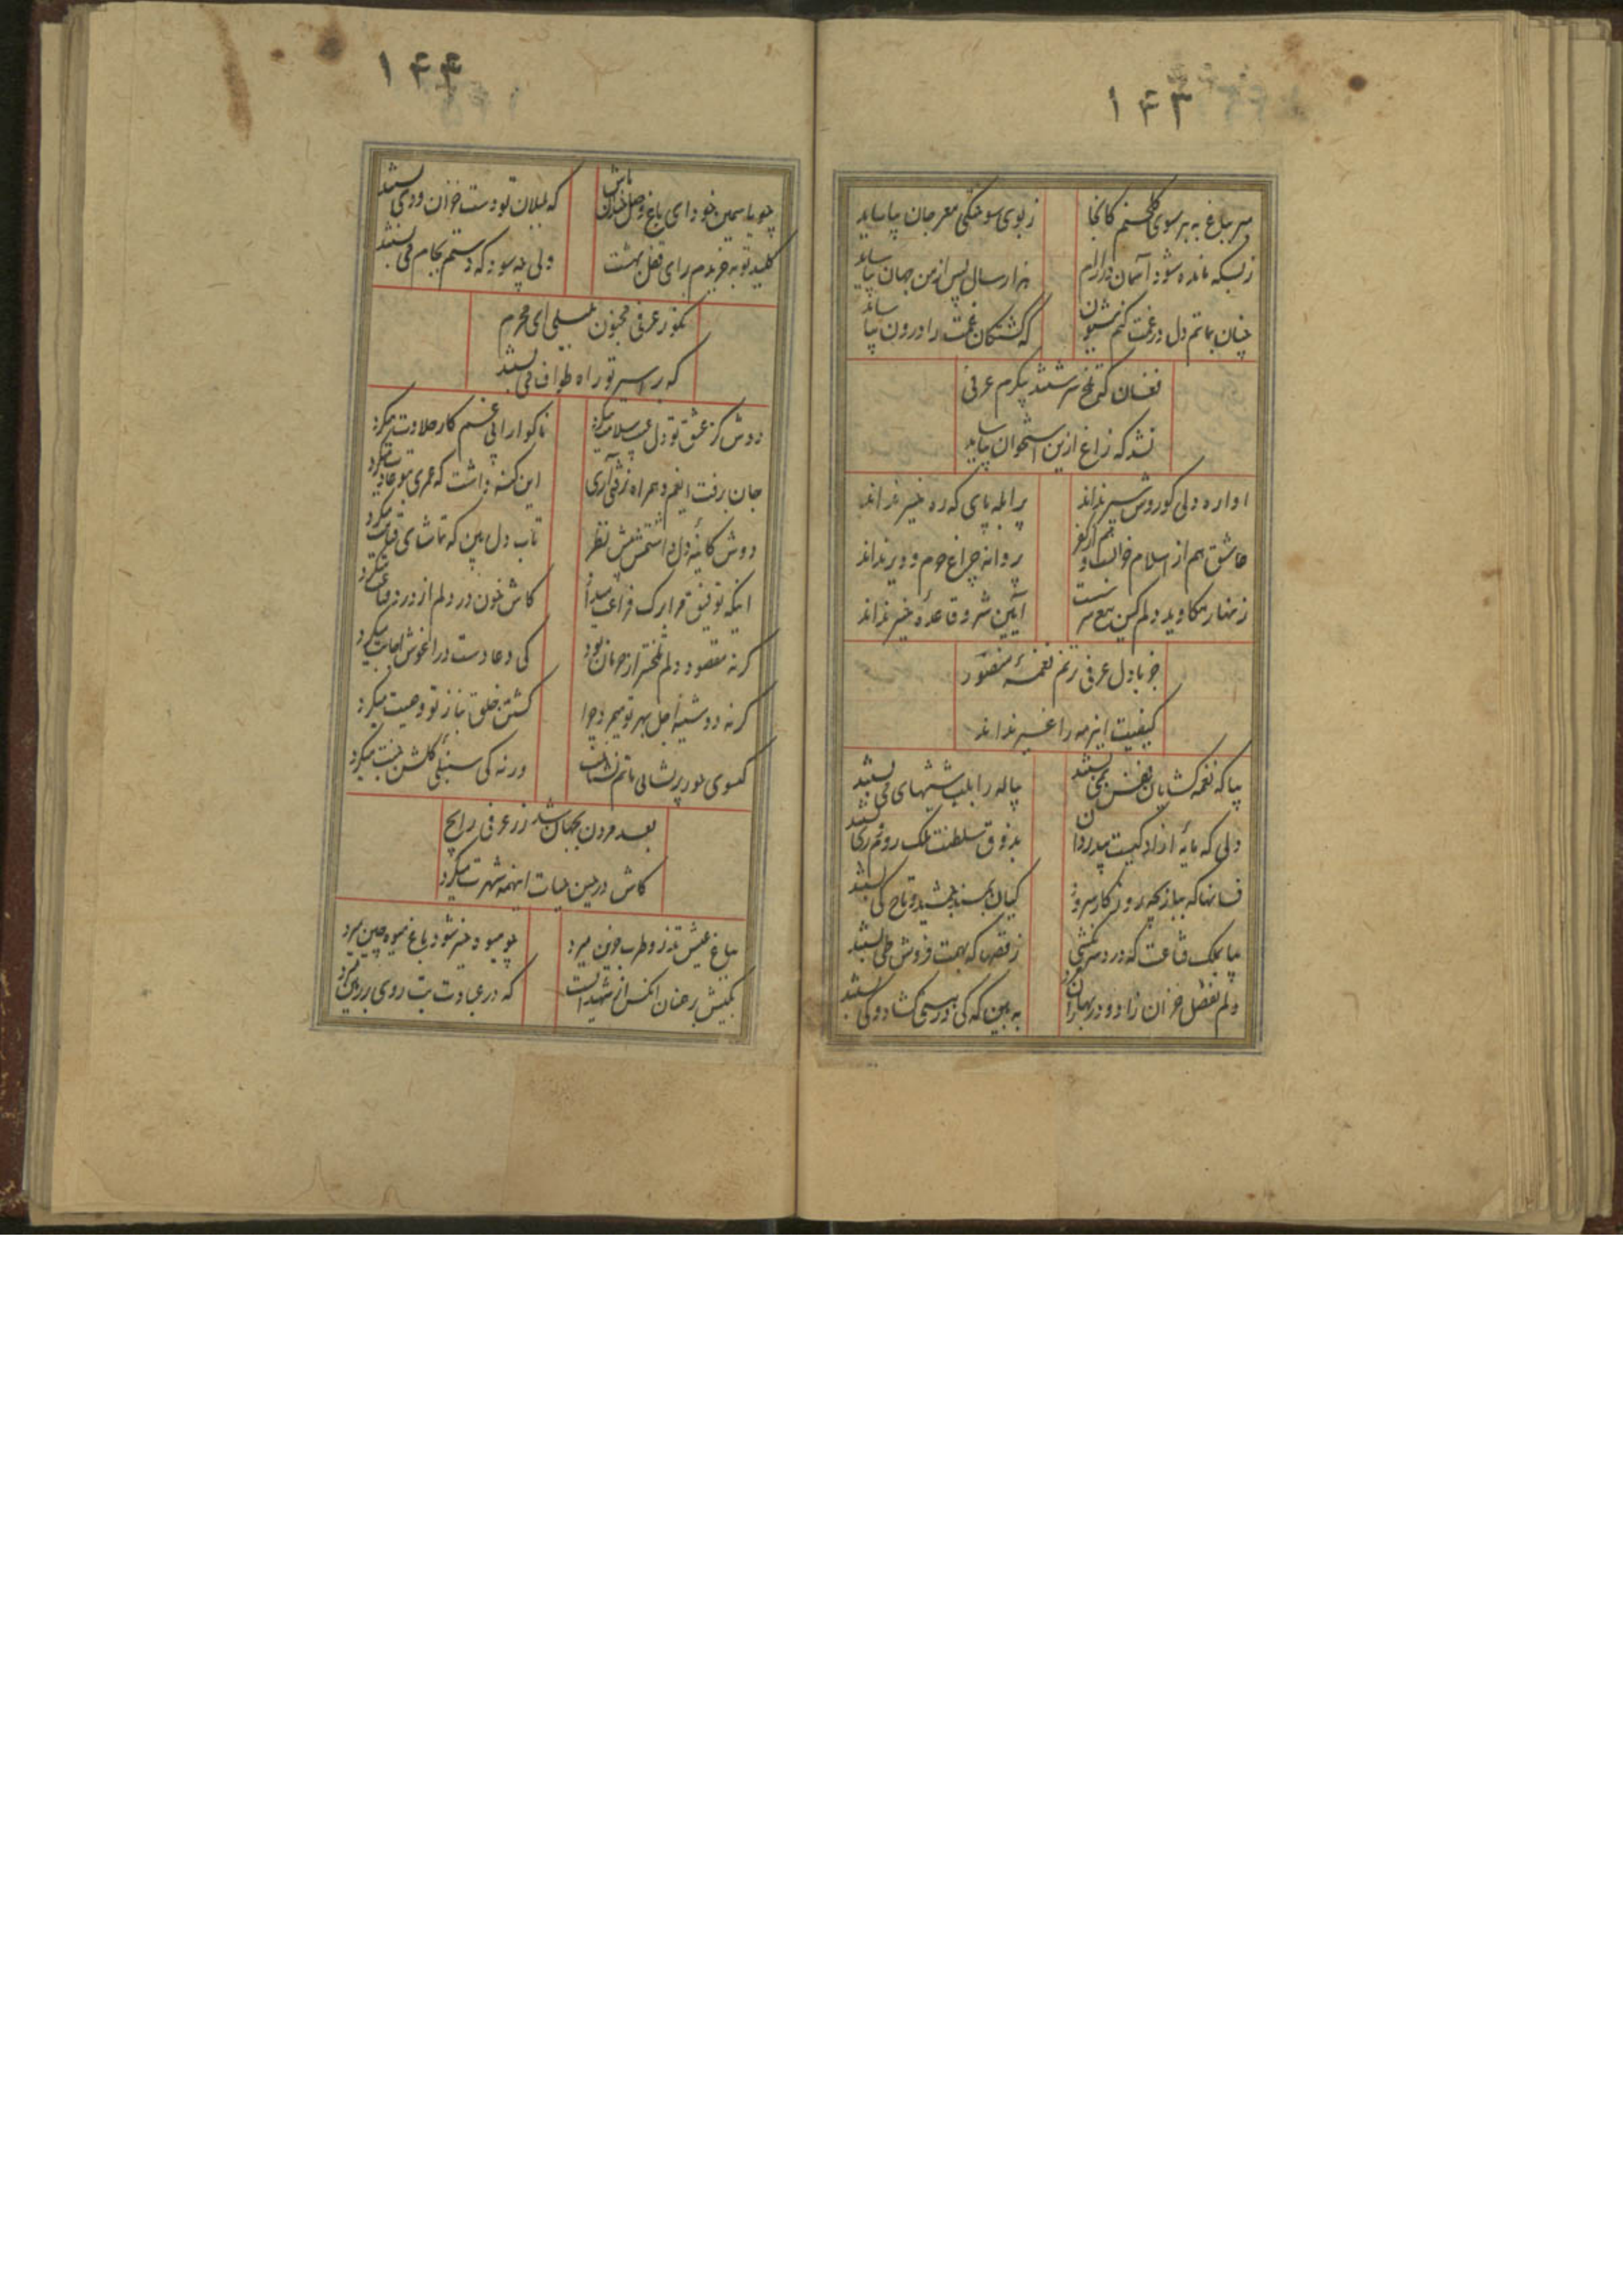 ۱۴۳
مبر بباغ به بر سوی گلخنم کانجا
ز بوی سوختگی مغز جان بیاساید
ز بسکه مانده شود آسمان در آرام
هزار سال پس از من جهان بیاساید
چنان بماتم دل در غمت کنم شیون
که کشتکان غمت را درون بیاساید
فغان که تلخ سرشتند پیکرم عرفی
نشد که زاغ ازین استخوان بیاساید
اواره دلی کو روش سیر نداند
پر ابله پای که ره خیر نداند
عاشق هم از اسلام خرابست و هم از کفر
پروانه چراغ حرم و دیر نداند
زنهار مکاوید دلم کین
آیین شر و قاعده خیر نداند
خوبا دل عرفی زنم نغمه منصور
کیفیت این زمه را غیر نداند
بیا که نغمه کشایان نفس بنی بستند
پیاله را بلب شیشهای می بستند
دلی که مایه ازادکیست
بذوق سلطنت ملک روم و ری بستند
فسانها که ببازیچه روزکار سرود
کیان بمسند جمشید و تاج کی بستند
بیا بملک قناعت که درد سر نکشی
ز قصها که بهمت فروش طی بستند
دلم بفصل خزان زاد و در بهاران مرد
به بین که کی در بستی کشاد و کی بستند
۱۴۴
چو یاسمین خود ای باغ وصل خندان باش
که بلبلان تو دست خزان و دی بستند
کلید توبه خریدم برای قفل بهشت
ولی چه سود که دستم بجام می بستند
بکور عرفی مجنون لیلی ای محرم
که بر اسیر تو راه طواف حی بستند
دوش کز عشق تو دل عیب سلامت میکرد
ناکوارایی غم کار حلاوت میکرد
جان برفت اینغم و همراه نرفتی آری
این کنه داشت که عمری بتو عادت میکرد
دوش کائینه دل داشتمش پیش نظر
تاب دل بین که تماشای قیامت میکرد
اینکه توفیق قرارک فراغت میداد
کاش خون در دلم از درد قناعت میکرد
کرنه مقصود دلم تلختر از حرمان بود
کی دعا دست در اغوش اجابت میکرد
کرنه دوشینه اجل بهر تو میمرد چرا
کشتن خلق بناز تو وصیت میکرد
کیسوی حور پریشانی ماتم نشناخت
ورنه کی سنبلی کلشن جنت میکرد
بعد مردن بجهان شد زر عرفی رایج
کاش در حین حیات اینهمه شهرت میکرد
بباغ عیش تذرو طرب حزین میرد
چو میوه خیر شود باغ میوه چین میرد
بکیش برهمنان انکس از شهیدانست
که در عبادت بت روی بر زمین میرد